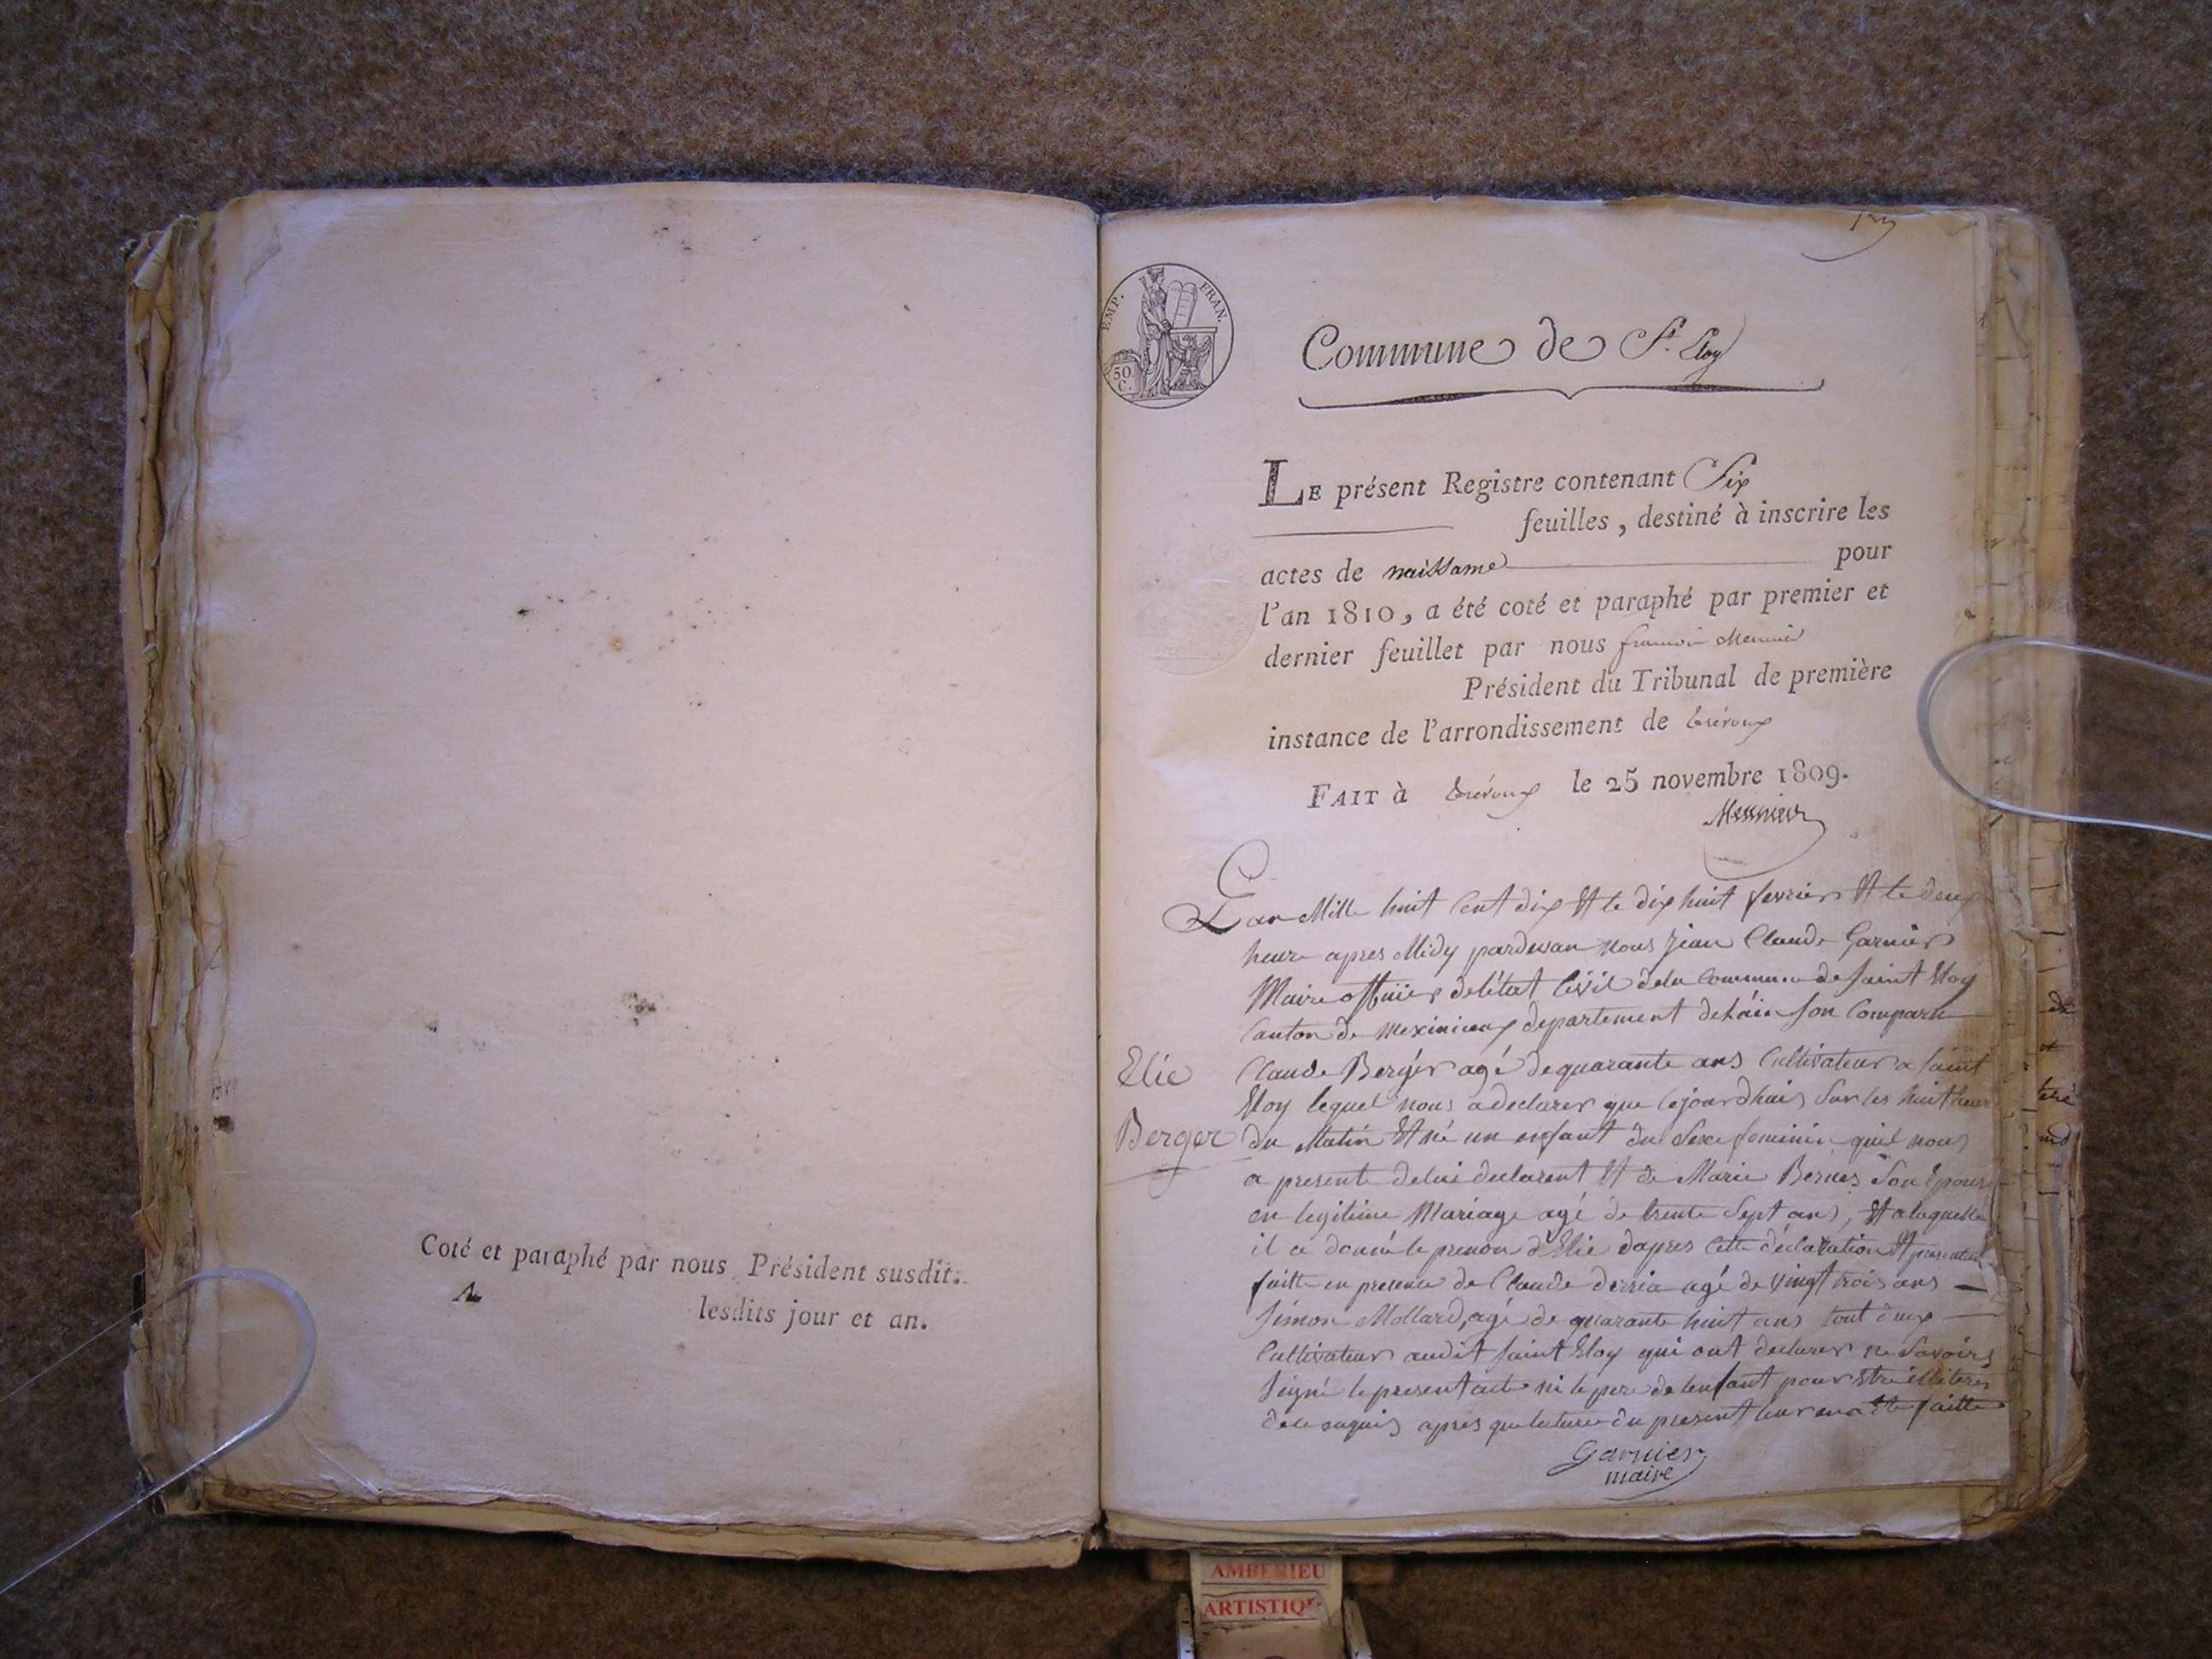 Coté et paraphé par nous Président susdit.
lesdits jour et an.
EMP. FRAN.
50
C.
Commune de St. Eloy
LE présent Registre contenant Six
feuilles, destiné à inscrire les
actes de naissance pour
l'an 1810, a été coté et paraphé par premier et
dernier feuillet par nous françois Meunier
Président du Tribunal de première
instance de l'arrondissement de trévoux
FAIT à trévoux le 25 novembre 1809.
Meunier
L'an Mille huit Cent dix Et le dix huit fevrier Et le deux
heure apres Midy pardevan nous jean Claude Garnier
Maire officier de létat Civil dela Commune de saint Eloy
Canton de meximieux departement de lain son Comparu
Elie
Berger
Claude Bergér agé de quarante ans Cultivateur a saint
Eloy lequel nous a declarer que cejourdhui sur les huit heur
du Matin Et né un enfant du sexe feminin quil nous
a presenté de lui declarent Et de Marie Bernes son Epouse
en legitime Mariage agé de trente sept ans, Et a laquelle
il a donné le prenon d'Elie dapres cette déclaration Et presentati
faitte en presence de Claude derria agé de vingt trois ans
Simon Mollard, agé de quarante huit ans tout deux
Cultivateur audit saint Eloy qui ont declarer ne savoir
signé le present acte ni le pere de lenfant pour Etre illiteres
de ce enquis apres que lecture du present leur en a Eté faitte
Garnier
maire
AMBERIEU
ARTISTIQUE